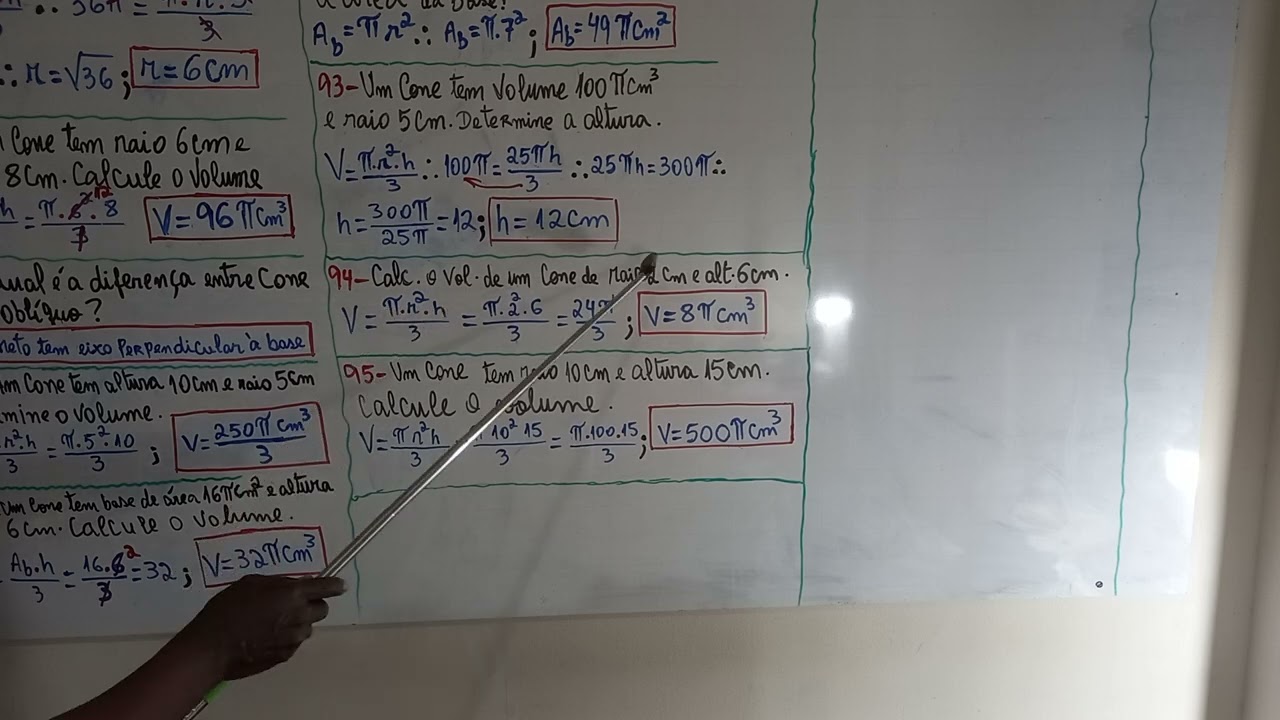 ∴ 36π =
∴ r = √36 ; r = 6cm
Cone tem raio 6cm e
8cm. Calcule o volume
h/ = π.6².8/3 V = 96πcm³
ual é a diferença entre Cone
oblíquo?
reto tem eixo perpendicular à base
m Cone tem altura 10cm e raio 5cm
mine o volume.
r².h/3 = π.5².10/3 ; V = 250πcm³/3
Um Cone tem base de área 16πcm² e altura
6cm. Calcule o volume.
Ab.h/3 = 16.6/3 = 32 ; V = 32πcm³
a área da base?
Ab = πr² ∴ Ab = π.7² ; Ab = 49πcm²
93- Um Cone tem volume 100πcm³
e raio 5cm. Determine a altura.
V = π.r².h/3 ∴ 100π = 25πh/3 ∴ 25πh = 300π ∴
h = 300π/25π = 12 ; h = 12cm
94- Calc. o vol. de um Cone de raio 2cm e alt. 6cm.
V = π.r².h/3 = π.2².6/3 = 24π/3 ; V = 8πcm³
95- Um Cone tem raio 10cm e altura 15cm.
Calcule o volume.
V = πr²h/3 10² 15/3 = π.100.15/3 ; V = 500πcm³